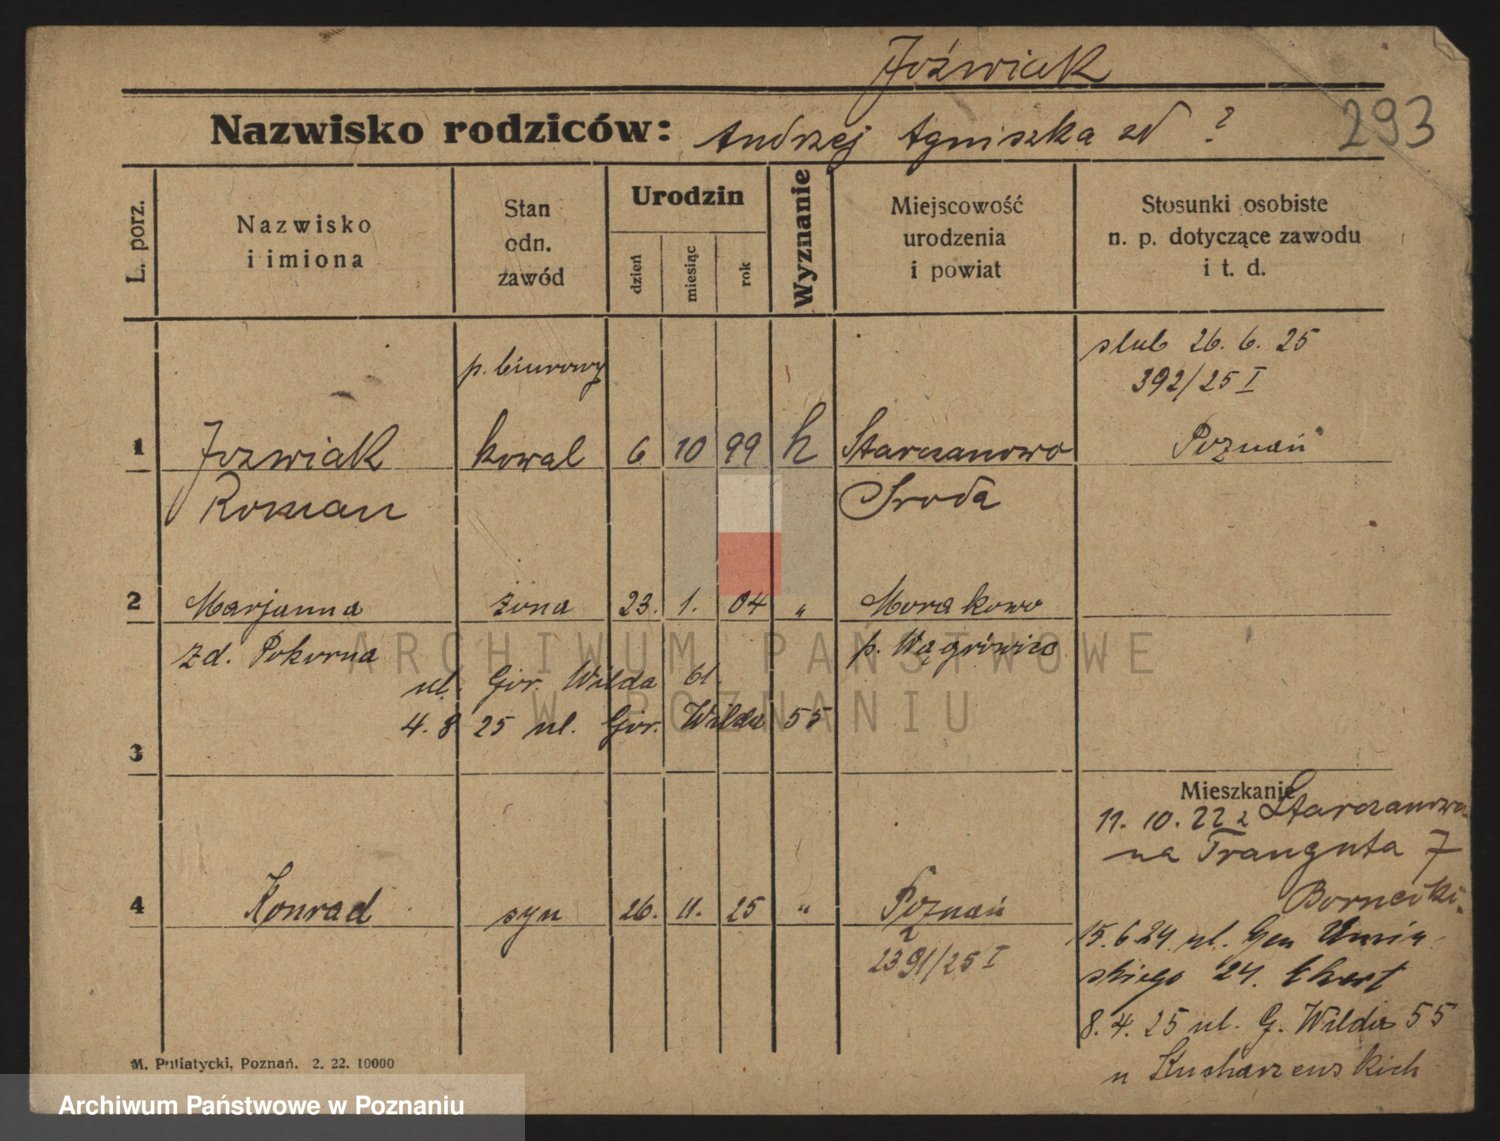 Jóźwiak
293
Nazwisko rodziców: Andrzej Agniszka zd ?
L. porz.
Nazwisko i imiona
Stan odn. zawód
Urodzin
dzień
miesiąc
rok
Wyznanie
Miejscowość urodzenia i powiat
Stosunki osobiste n. p. dotyczące zawodu i t. d.
p. biurowy
slub 26. 6. 25
392/25 I
1 Jozwiak kowal 6 10 99 k Starczanowo Poznań
Roman Sroda
2 Marjanna żona 23. 1. 04 " Morakowo
zd. Pokorna p. Wągrówiec
ul. Gor. Wilda 61.
4. 8 25 ul. Gór. Wilda 55
3
Mieszkanie
11. 10. 22 z Starczanowa
na Trauguta 7
4 Konrad syn 26. 11. 25 " Poznań
2391/25 I
15. 6 24 ul. Gen Umiń
skiego 24.
8. 4. 25 ul. G. Wilda 55
u Kucharzewskich
M. Putiatycki, Poznań. 2. 22. 10000
ARCHIWUM PAŃSTWOWE
W POZNANIU
Archiwum Państwowe w Poznaniu